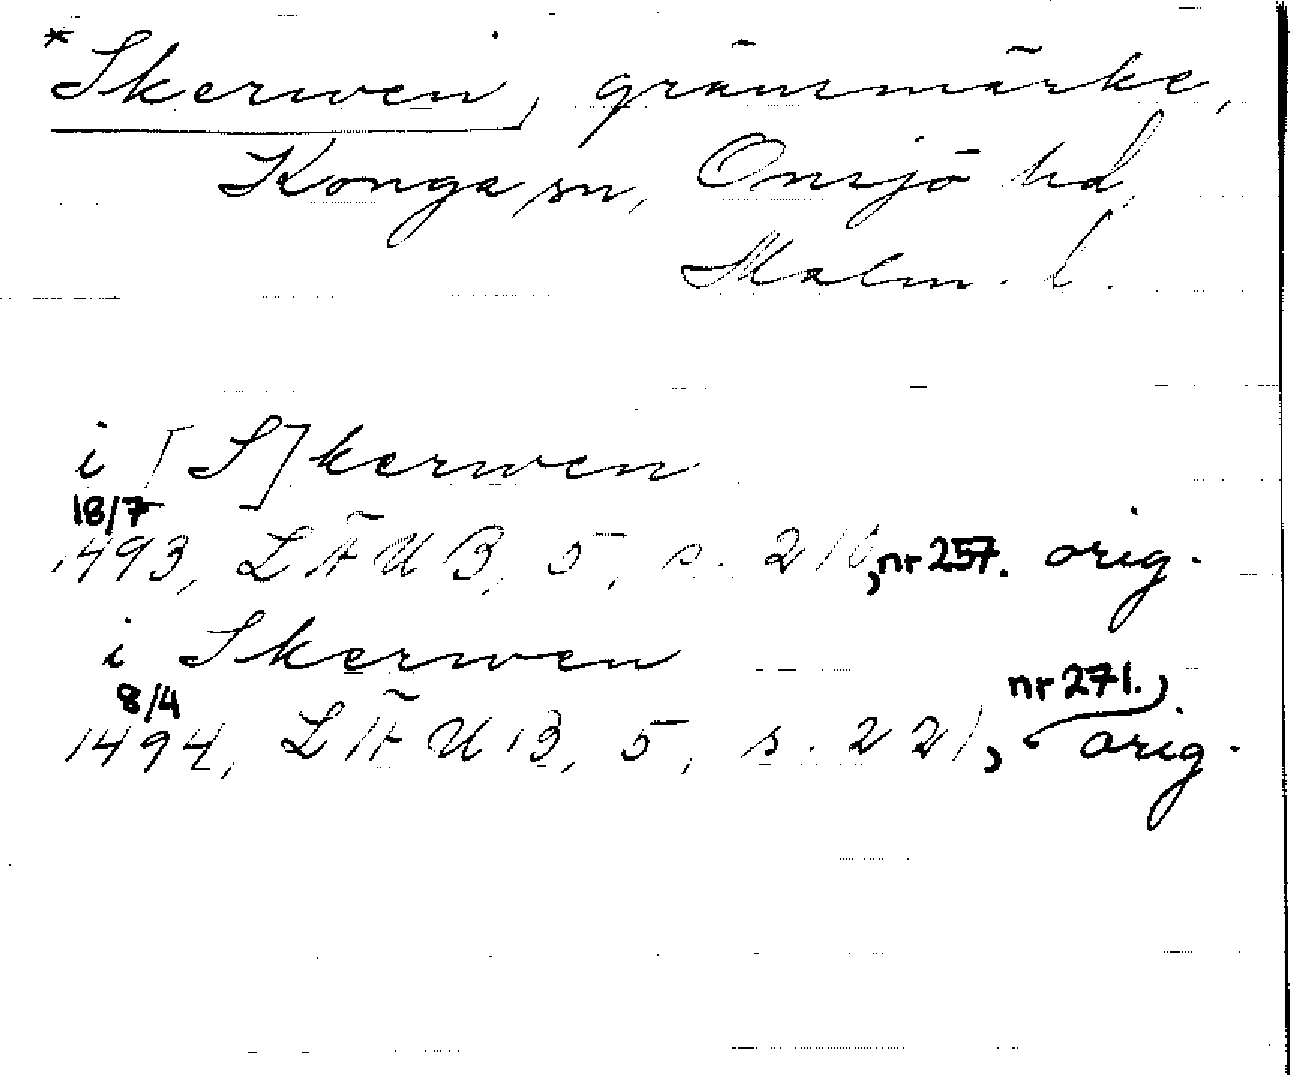 *Skerwen, gränsmärke,
Konga sn, Onsjö hd,
Malm. l.
i [S]kerwen
18/7
1493, LÄUB, 5, s. 210, nr 257. orig.
i Skerwen
8/4 nr 271.
1494, LÄUB, 5, s. 221, orig.